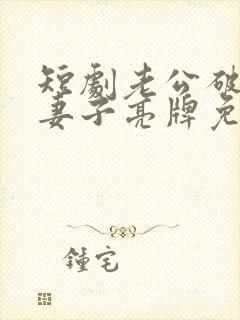 短劇老公破
妻子亮牌免
鍾宅